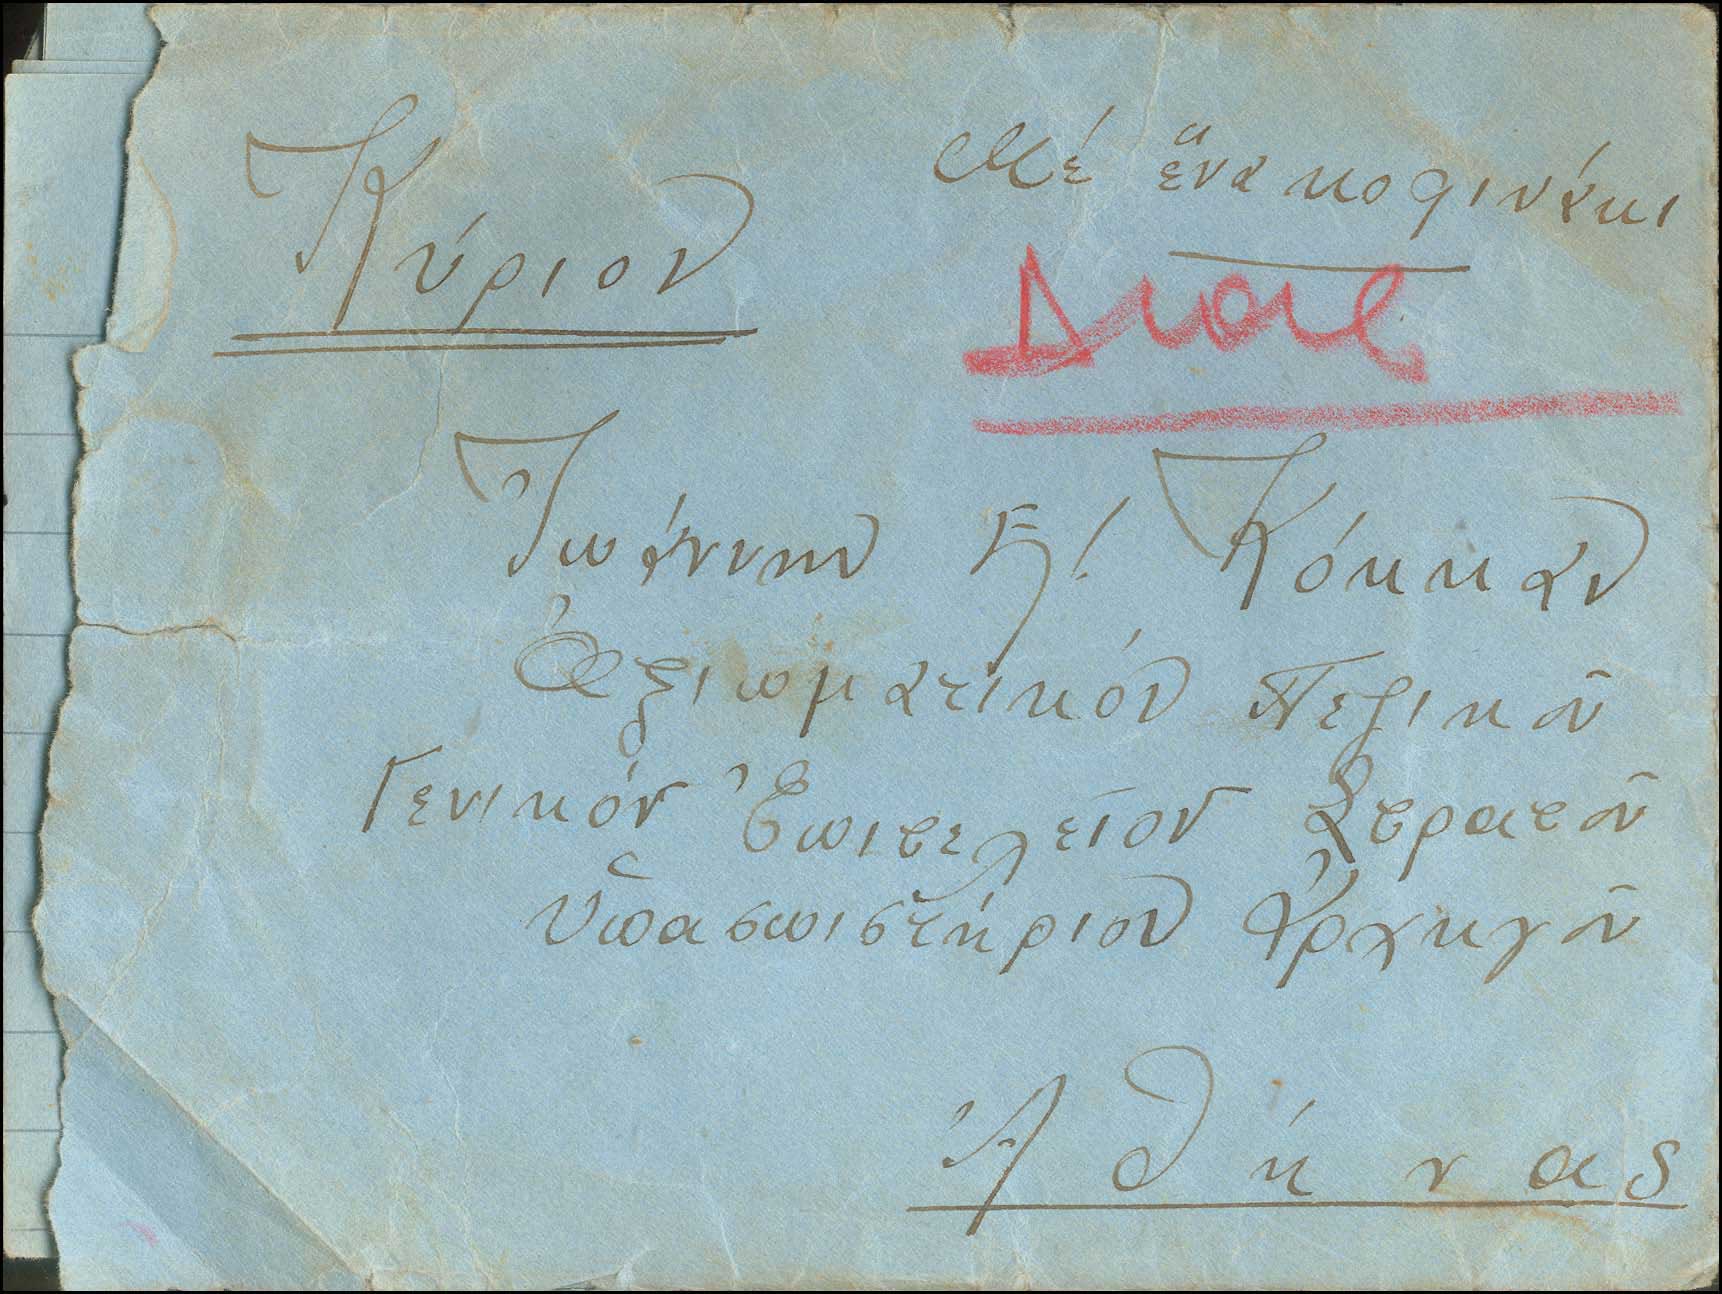 Κύριον
Μέ ἕνα κοφινάκι
Ἰωάννην Ἠ! Κόκκαν
Ἀξιωματικόν Πεζικοῦ
Γενικόν Ἐπιτελεῖον Στρατοῦ
Ὑπασπιστήριον Ἀρχηγοῦ
Ἀθήνας